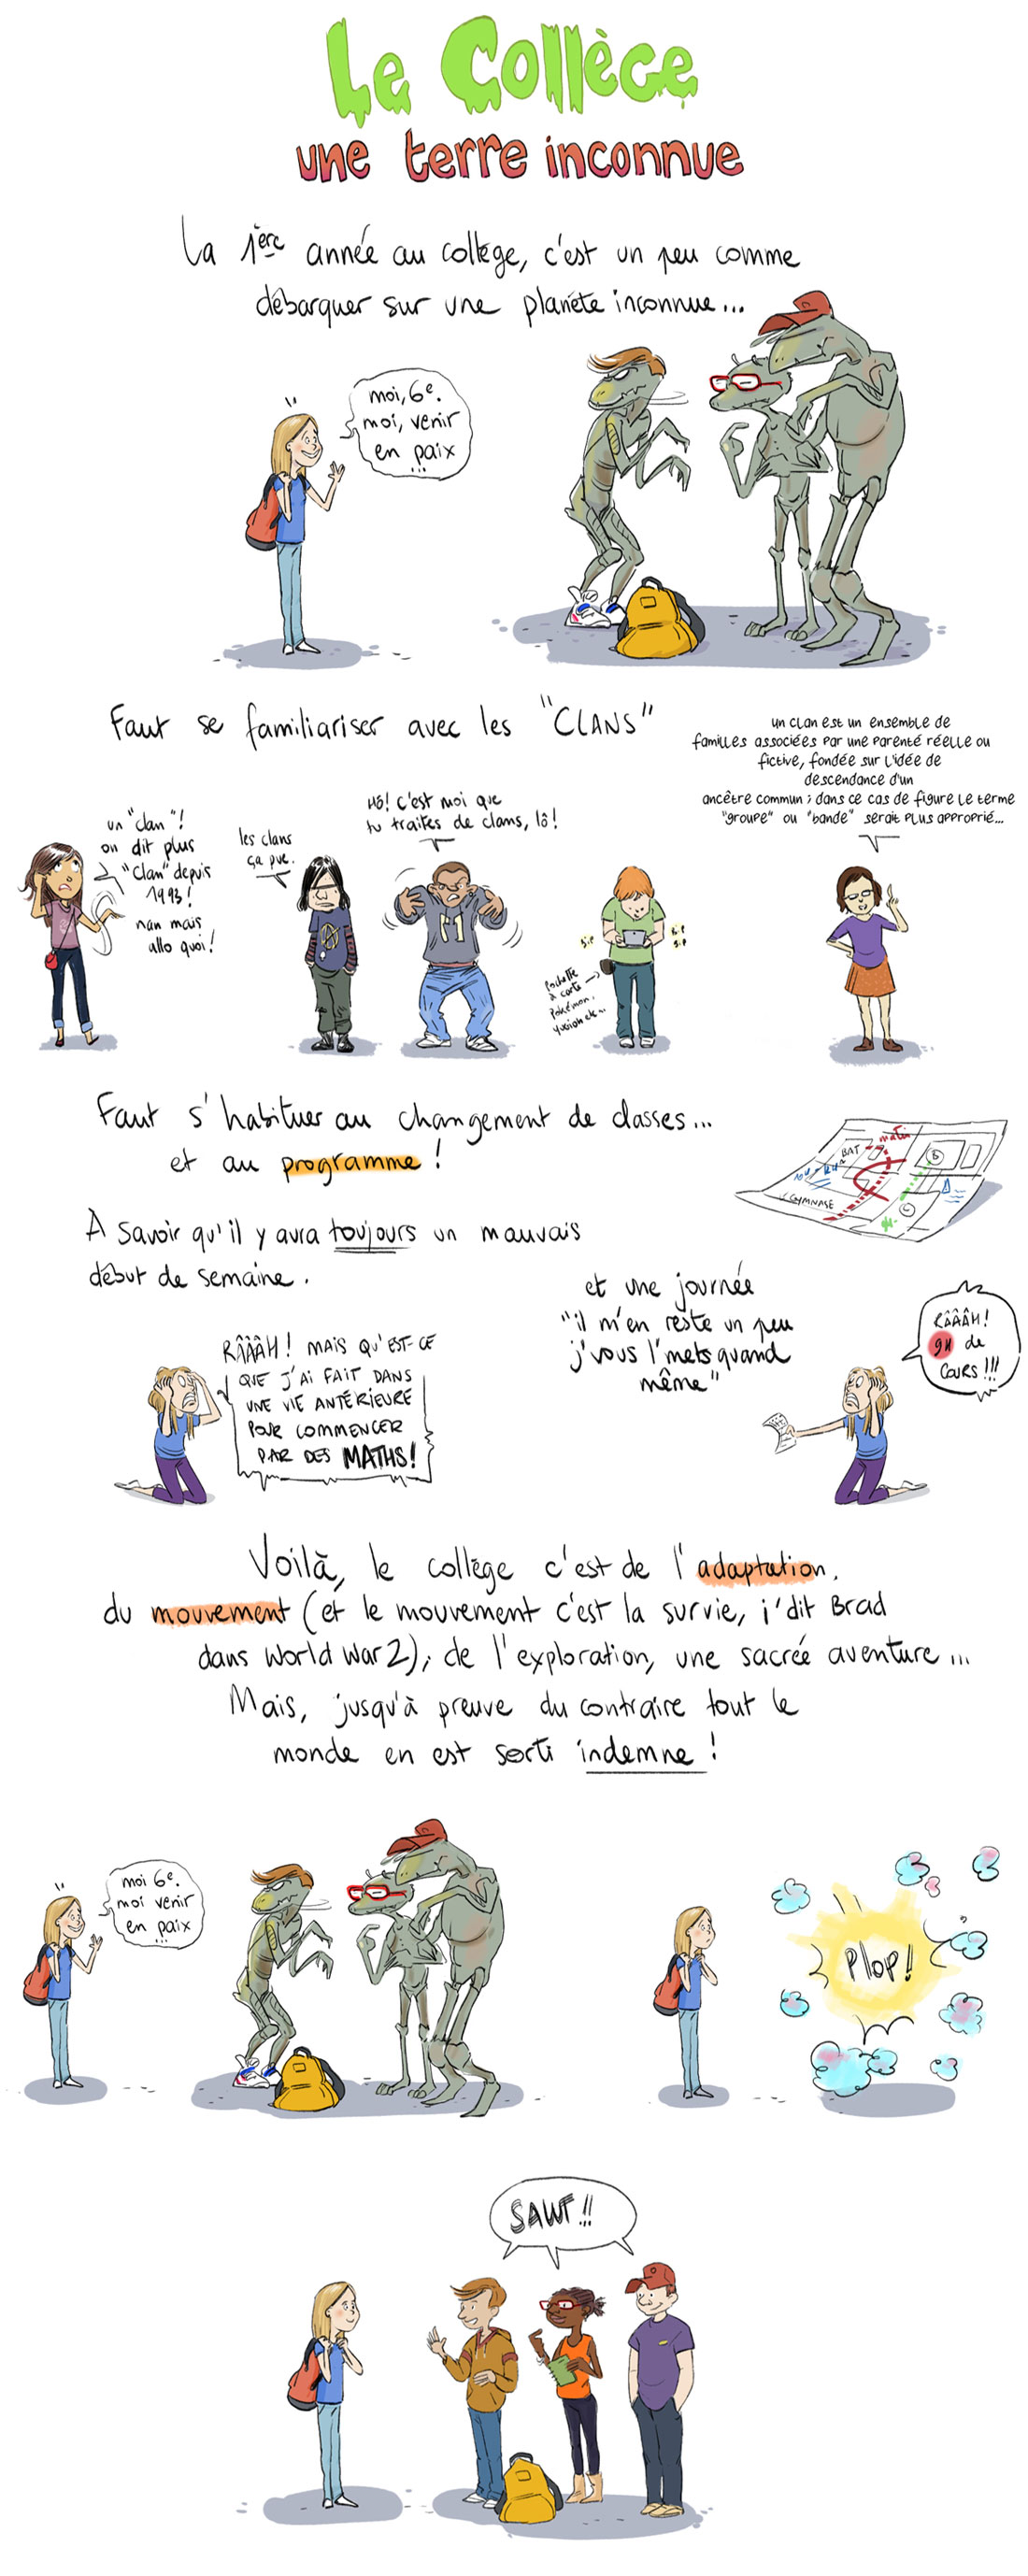 Le Collège
une terre inconnue
La 1ère année au collège, c'est un peu comme
débarquer sur une planète inconnue...
moi, 6e.
moi, venir
en paix
...
Faut se familiariser avec les "CLANS"
un clan est un ensemble de
familles associées par une parenté réelle ou
fictive, fondée sur l'idée de
descendance d'un
ancêtre commun ; dans ce cas de figure le terme
"groupe" ou "bande" serait plus approprié...
un "clan"!
on dit plus
"clan" depuis
1993!
nan mais
allo quoi!
les clans
ça pue.
Hô! c'est moi que
tu traites de clans, lô!
Bip
Bip
Bip
Pochette
à carte
Pokémon,
Faut s'habituer au changement de classes...
et au programme!
BAT
matin
GYMNASE
B
C
A savoir qu'il y aura toujours un mauvais
début de semaine.
RÂÂÂH! MAIS QU'EST-CE
QUE J'AI FAIT DANS
UNE VIE ANTÉRIEURE
POUR COMMENCER
PAR DES MATHS!
et une journée
"il m'en reste un peu
j'vous l'mets quand
même"
RÂÂÂH!
9H de
COURS!!!
Voilà, le collège c'est de l'adaptation,
du mouvement (et le mouvement c'est la survie, i'dit Brad
dans World War 2), de l'exploration, une sacrée aventure...
Mais, jusqu'à preuve du contraire tout le
monde en est sorti indemne!
moi 6e.
moi venir
en paix
...
PLOP!
SAWT!!